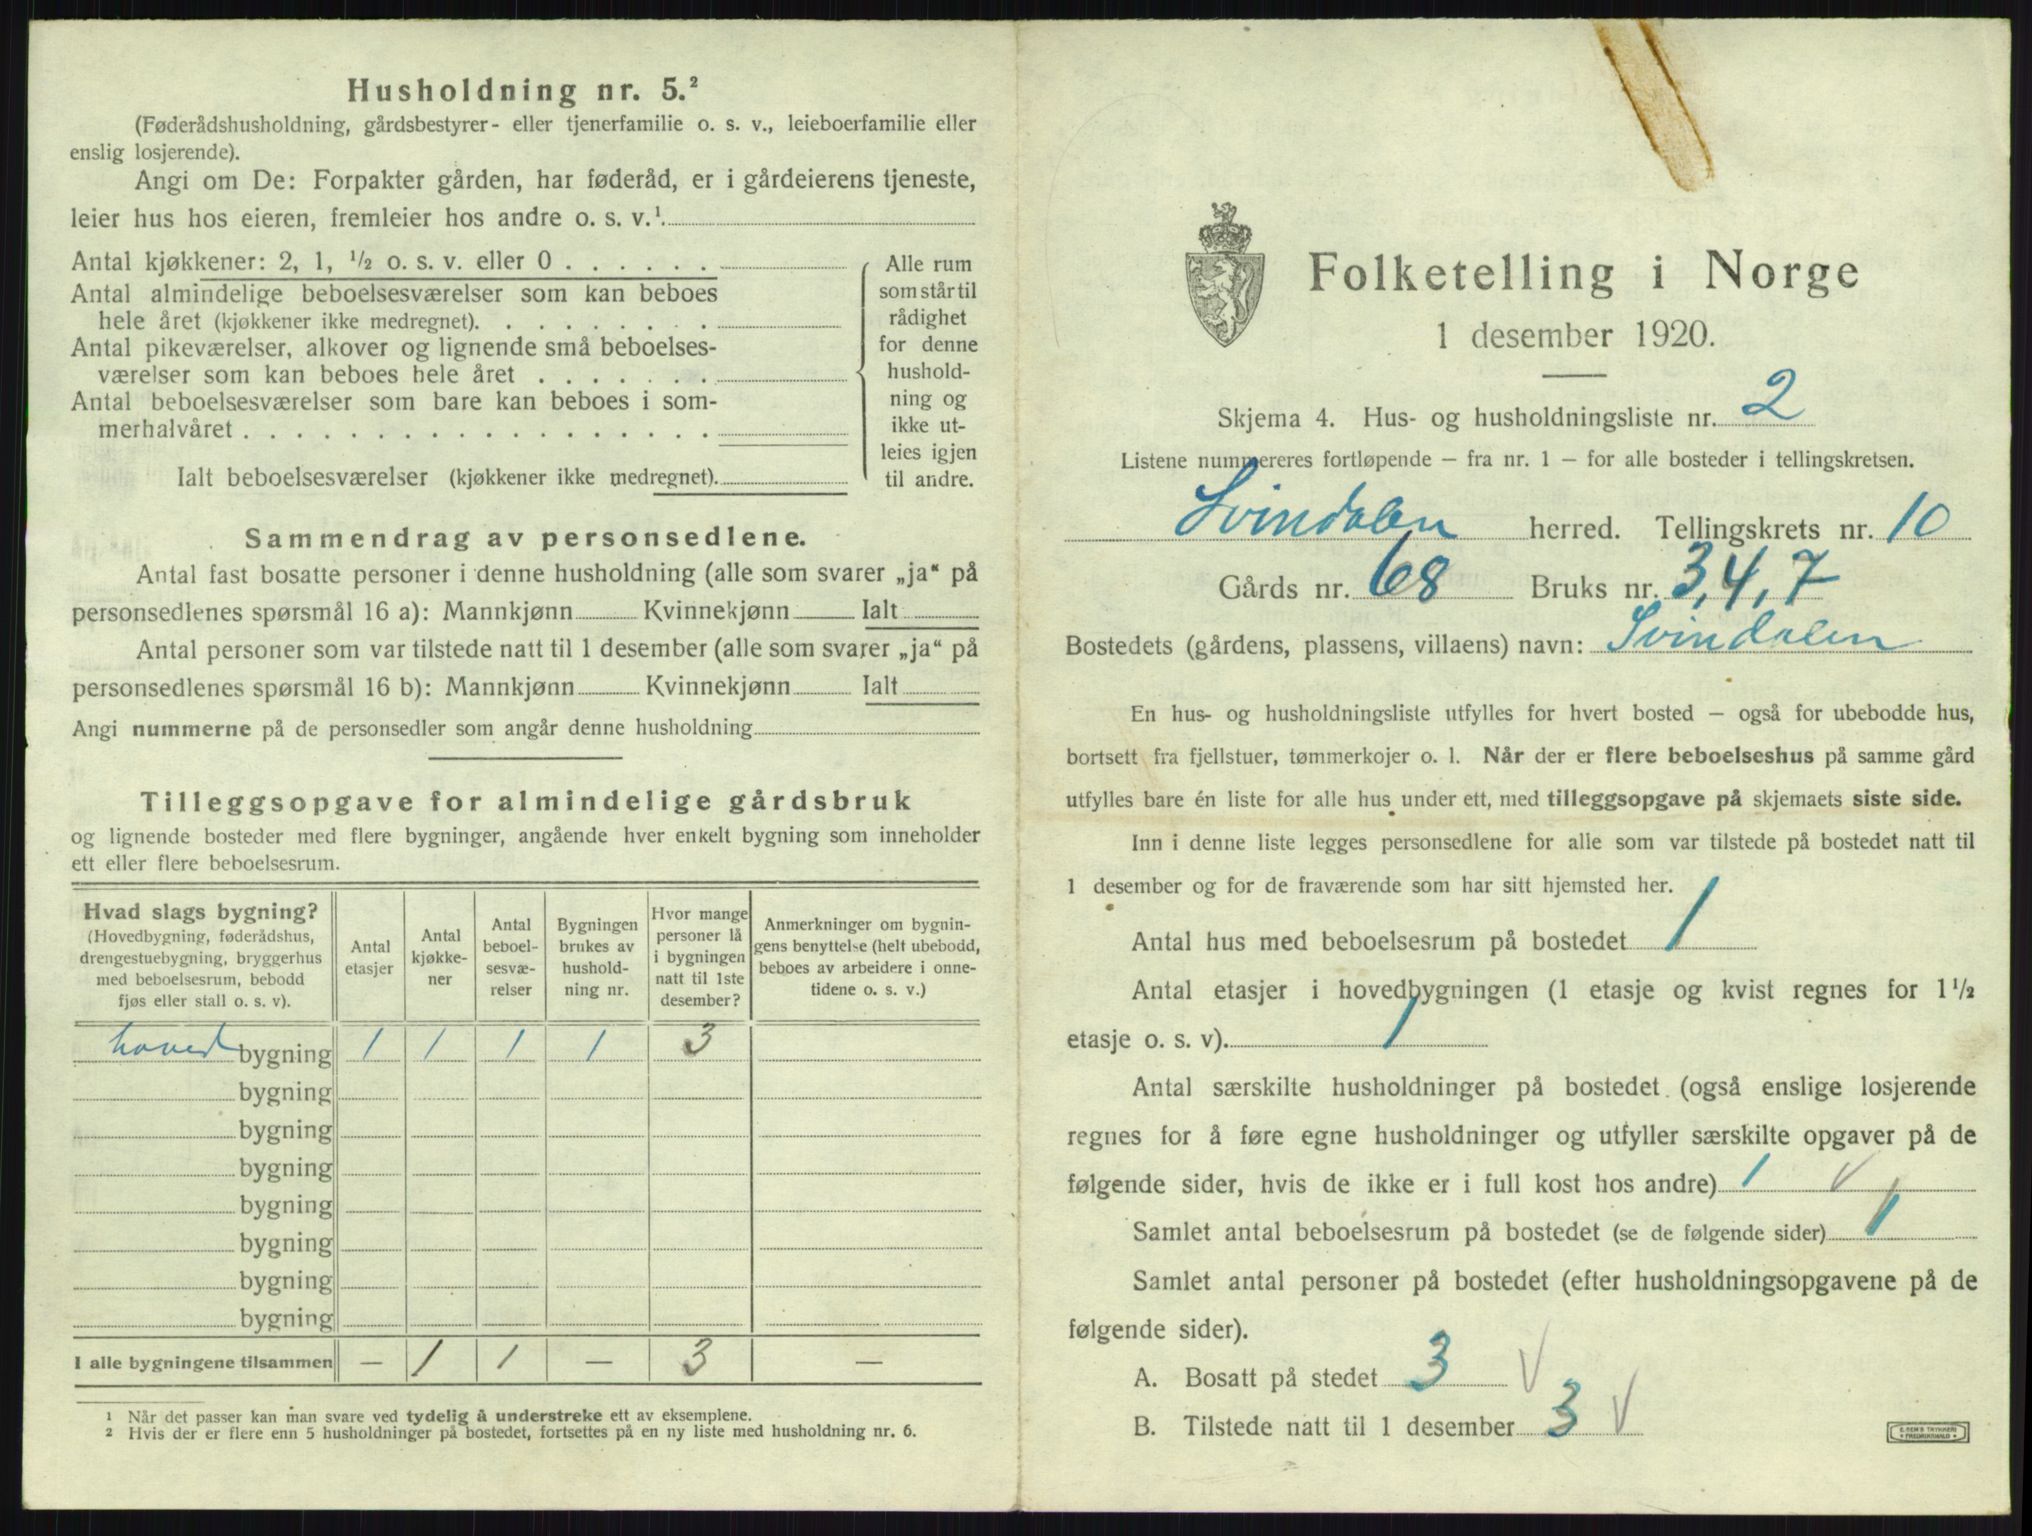 Husholdning nr. 5.²
(Føderådshusholdning, gårdsbestyrer- eller tjenerfamilie o. s. v., leieboerfamilie eller
enslig losjerende).
Angi om De: Forpakter gården, har føderåd, er i gårdeierens tjeneste,
leier hus hos eieren, fremleier hos andre o. s. v.¹
Antal kjøkkener: 2, 1, ½ o. s. v. eller 0
Antal almindelige beboelsesværelser som kan beboes
hele året (kjøkkener ikke medregnet).
Antal pikeværelser, alkover og lignende små beboelses-
værelser som kan beboes hele året
Antal beboelsesværelser som bare kan beboes i som-
merhalvåret
Ialt beboelsesværelser (kjøkkener ikke medregnet).
Alle rum
som står til
rådighet
for denne
hushold-
ning og
ikke ut-
leies igjen
til andre.
Sammendrag av personsedlene.
Antal fast bosatte personer i denne husholdning (alle som svarer „ja“ på
personsedlenes spørsmål 16 a): Mannkjønn Kvinnekjønn Ialt
Antal personer som var tilstede natt til 1 desember (alle som svarer „ja“ på
personsedlenes spørsmål 16 b): Mannkjønn Kvinnekjønn Ialt
Angi nummerne på de personsedler som angår denne husholdning
Tilleggsopgave for almindelige gårdsbruk
og lignende bosteder med flere bygninger, angående hver enkelt bygning som inneholder
ett eller flere beboelsesrum.
Hvad slags bygning?
(Hovedbygning, føderådshus,
drengestuebygning, bryggerhus
med beboelsesrum, bebodd
fjøs eller stall o. s. v).
Antal
etasjer
Antal
kjøkke-
ner
Antal
beboel-
sesvæ-
relser
Bygningen
brukes av
hushold-
ning nr.
Hvor mange
personer lå
i bygningen
natt til 1ste
desember?
Anmerkninger om bygnin-
gens benyttelse (helt ubebodd,
beboes av arbeidere i onne-
tidene o. s. v.)
hoved bygning 1 1 1 1 3
bygning
bygning
bygning
bygning
bygning
bygning
bygning
I alle bygningene tilsammen — 1 1 — 3 —
1 Når det passer kan man svare ved tydelig å understreke ett av eksemplene.
2 Hvis der er flere enn 5 husholdninger på bostedet, fortsettes på en ny liste med husholdning nr. 6.
Folketelling i Norge
1 desember 1920.
Skjema 4. Hus- og husholdningsliste nr. 2
Listene nummereres fortløpende — fra nr. 1 — for alle bosteder i tellingskretsen.
Svindalen herred. Tellingskrets nr. 10
Gårds nr. 68 Bruks nr. 3, 4, 7
Bostedets (gårdens, plassens, villaens) navn: Svindalen
En hus- og husholdningsliste utfylles for hvert bosted — også for ubebodde hus,
bortsett fra fjellstuer, tømmerkojer o. l. Når der er flere beboelseshus på samme gård
utfylles bare én liste for alle hus under ett, med tilleggsopgave på skjemaets siste side.
Inn i denne liste legges personsedlene for alle som var tilstede på bostedet natt til
1 desember og for de fraværende som har sitt hjemsted her.
Antal hus med beboelsesrum på bostedet 1
Antal etasjer i hovedbygningen (1 etasje og kvist regnes for 1½
etasje o. s. v). 1
Antal særskilte husholdninger på bostedet (også enslige losjerende
regnes for å føre egne husholdninger og utfyller særskilte opgaver på de
følgende sider, hvis de ikke er i full kost hos andre) 1 √
Samlet antal beboelsesrum på bostedet (se de følgende sider) 1
Samlet antal personer på bostedet (efter husholdningsopgavene på de
følgende sider).
A. Bosatt på stedet 3 √
B. Tilstede natt til 1 desember 3 √
E. SEM'S TRYKKERI
FREDRIKSHALD